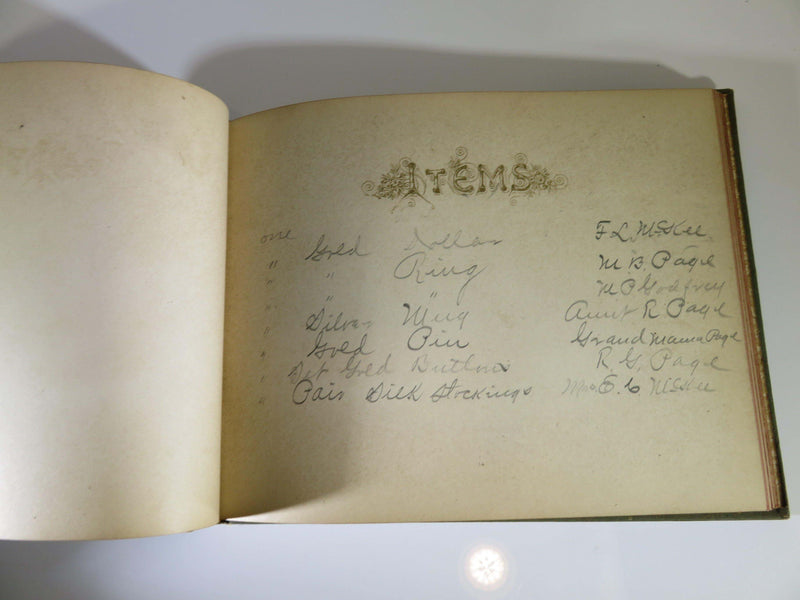 ITEMS
one Gold Dollar F. L. McKee
" " Ring M B Page
" " " M P Godfrey
" Silver Mug Aunt R Page
" Gold Pin Grand Mama Page
" Set Gold Buttons R. G. Page
" Pair Silk Stockings Mrs E. C McKee